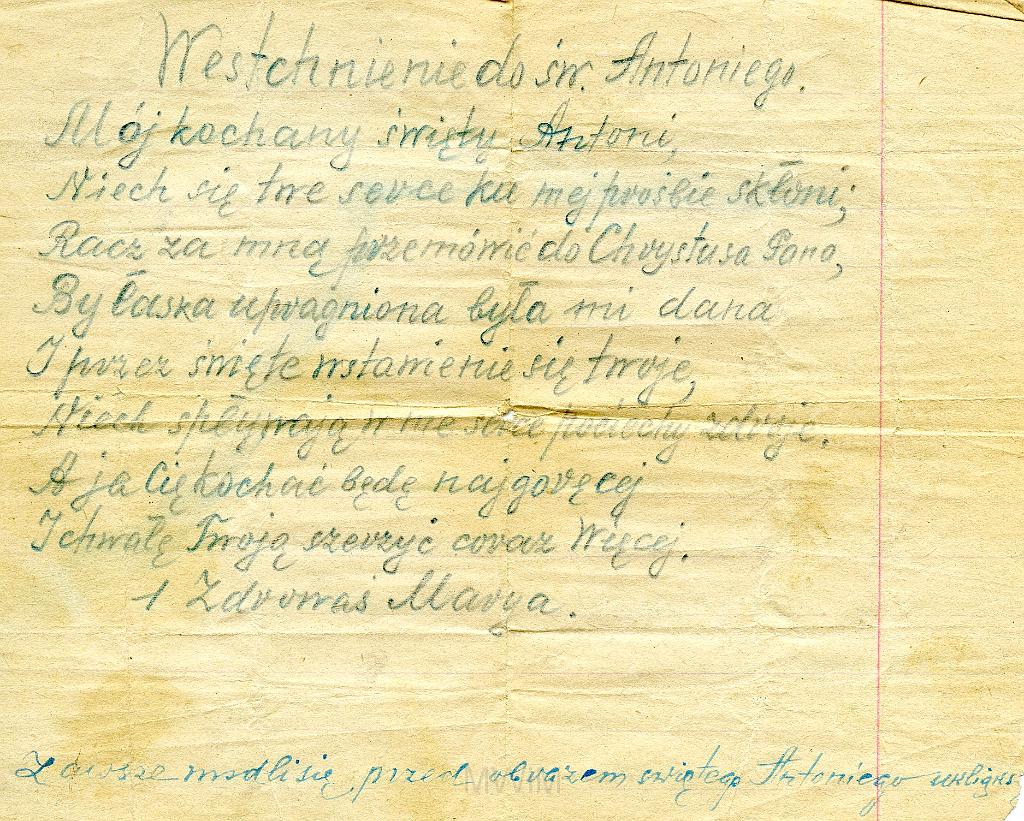 Westchnienie do św. Antoniego.
Mój kochany święty Antoni,
Niech się twe serce ku mej prośbie skłoni;
Racz za mną przemówić do Chrystusa Pana,
By łaska upragniona była mi dana
I przez święte wstawienie się twoje,
Niech spływają w me serce pociechy zdroje.
A ja Cię kochać będę najgoręcej
I chwałę Twoją szerzyć coraz Więcej.
1 Zdrowaś Marya.
Zawsze modli się przed obrazem swiętego Antoniego